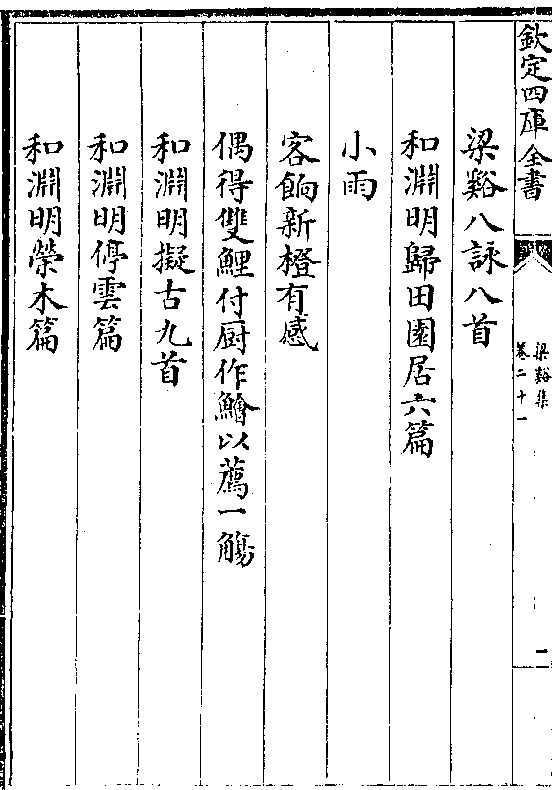 欽定四庫全書
梁谿集
卷二十一
一
梁谿八詠八首
和淵明歸田園居六篇
小雨
客餉新橙有感
偶得雙鯉付厨作鱠以薦一觴
和淵明擬古九首
和淵明停雲篇
和淵明榮木篇